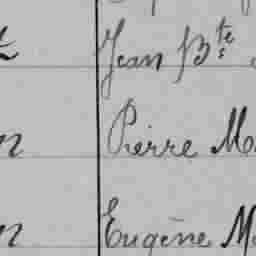 Jean Bte
Pierre M
Eugène M